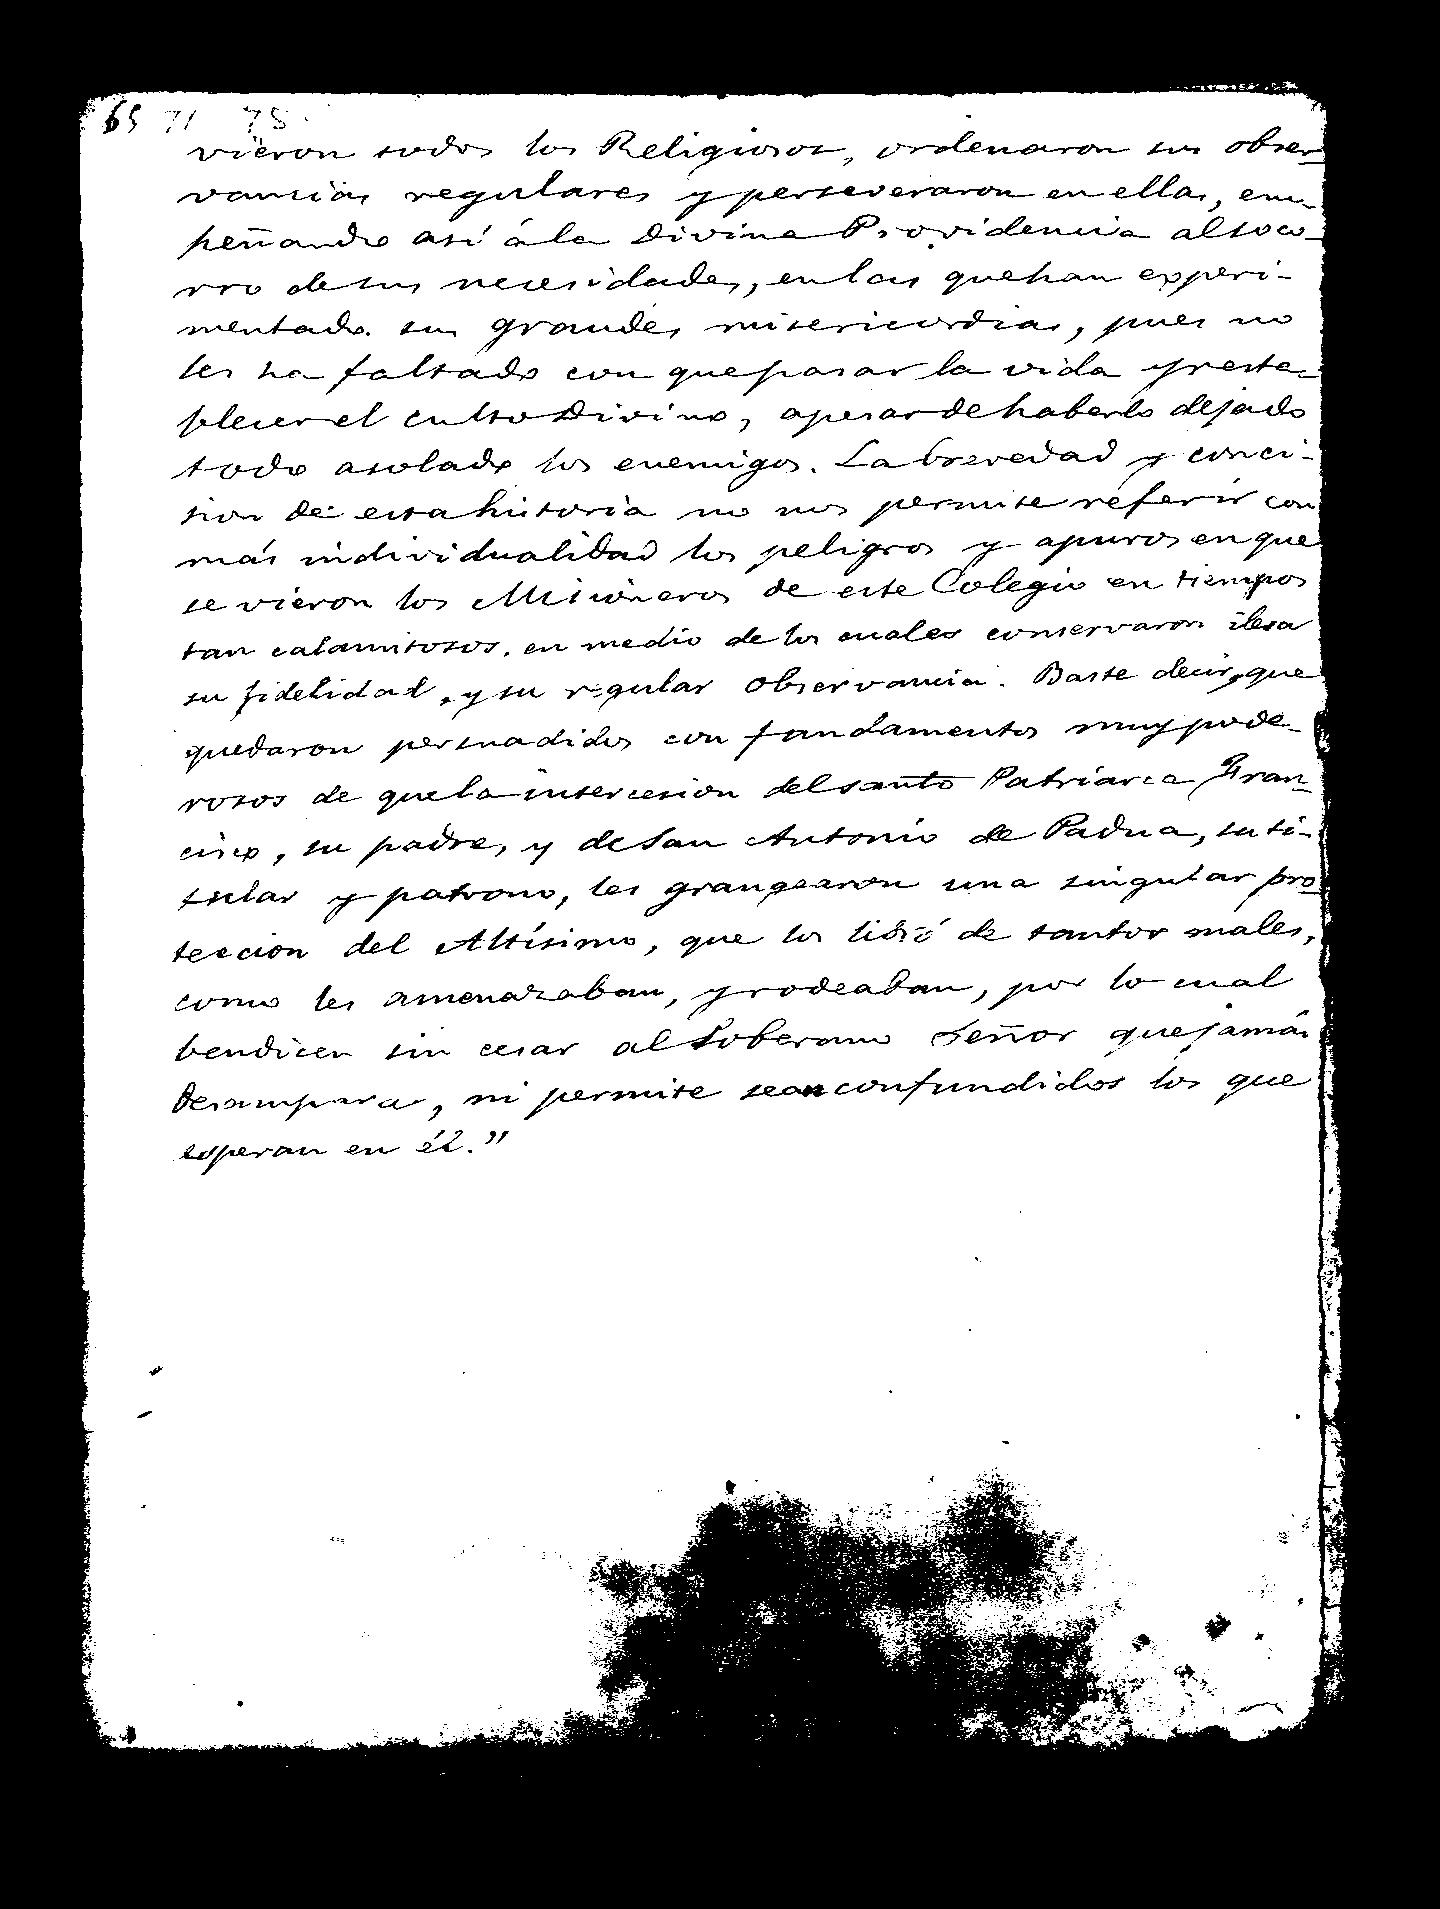 65 71 75
vieron todos los Religiosos, ordenaron sus obser-
vancias regulares y perseveraron en ellas, em-
peñando así á la Divina Providencia al soco-
rro de sus necesidades, en las que han experi-
mentado sus grandes misericordias, pues no
les ha faltado con que pasar la vida y resta-
blecer el culto Divino, apesar de haberlo dejado
todo asolado los enemigos. La brevedad y conci-
sion de esta historia no nos permite referir con
más individualidad los peligros y apuros en que
se vieron los Misioneros de este Colegio en tiempos
tan calamitosos, en medio de los cuales conservaron ilesa
su fidelidad, y su regular observancia. Baste decir, que
quedaron persuadidos con fundamentos muy pode-
rosos de que la intercesion del santo Patriarca Fran-
cisco, su padre, y de San Antonio de Padua, su ti-
tular y patrono, les grangearon una singular pro-
teccion del Altísimo, que los libró de tantos males,
como les amenazaban, y rodeaban, por lo cual
bendicen sin cesar al Soberano Señor que jamás
desampara, ni permite sean confundidos los que
esperan en él."